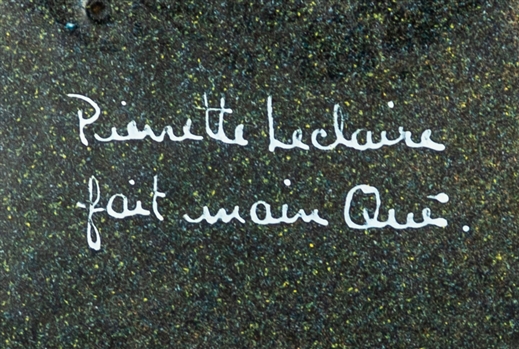 Pierrette Leclaire
fait main Qué.